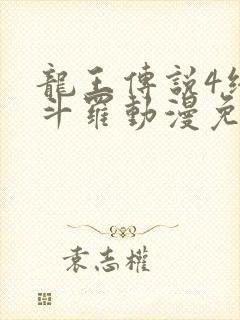 龍王傳説4終
斗羅動漫免
袁志權